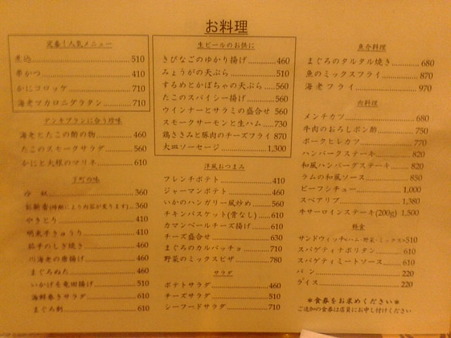 お料理
定番!人気メニュー
煮込 510
串かつ 410
かにコロッケ 410
海老マカロニグラタン 710
デンキブランに合う珍味
海老とたこの酢の物 460
たこのスモークサラダ 560
かにと大根のマリネ 610
360
やきとり 410
明太子きゅうり 410
460
川海老の唐揚げ 460
まぐろぬた 510
いかげそ竜田揚げ 510
海鮮春さサラダ 610
まぐろ刺 610
生ビールのお供に
きびなごのゆかり揚げ 460
みょうがの天ぷら 510
するめとかぼちゃの天ぷら 560
たこのスパイシー揚げ 560
ウインナーとサラミの盛合せ 560
スモークサーモンと生ハム 730
鶏ささみと豚肉のチーズフライ 870
大皿ソーセージ 1,300
洋風おつまみ
フレンチポテト 410
ジャーマンポテト 460
いかのハンガリー風炒め 560
チキンバスケット(骨なし) 610
カマンベールチーズ揚げ 610
チーズ盛合せ 630
まぐろのカルパッチョ 710
野菜のミックスピザ 780
サラダ
ポテトサラダ 460
チーズサラダ 510
シーフードサラダ 710
魚介料理
まぐろのタルタル焼き 680
魚のミックスフライ 870
海老フライ 970
肉料理
メンチカツ 680
牛肉のおろしポン酢 750
ポークヒレカツ 770
ハンバークステーキ 820
和風ハンバーグステーキ 820
ラムの和風ソース 850
ビーフシチュー 1,000
スペアリブ 1,380
サーロインステーキ(200g) 1,500
軽食
サンドウィッチ(ハム・野菜・ミックス) 510
スパゲティナポリタン 610
スパゲティミートソース 610
パン 220
ライス 220
*食券をお求めください*
ご追加の食券は店員にお申し付けください